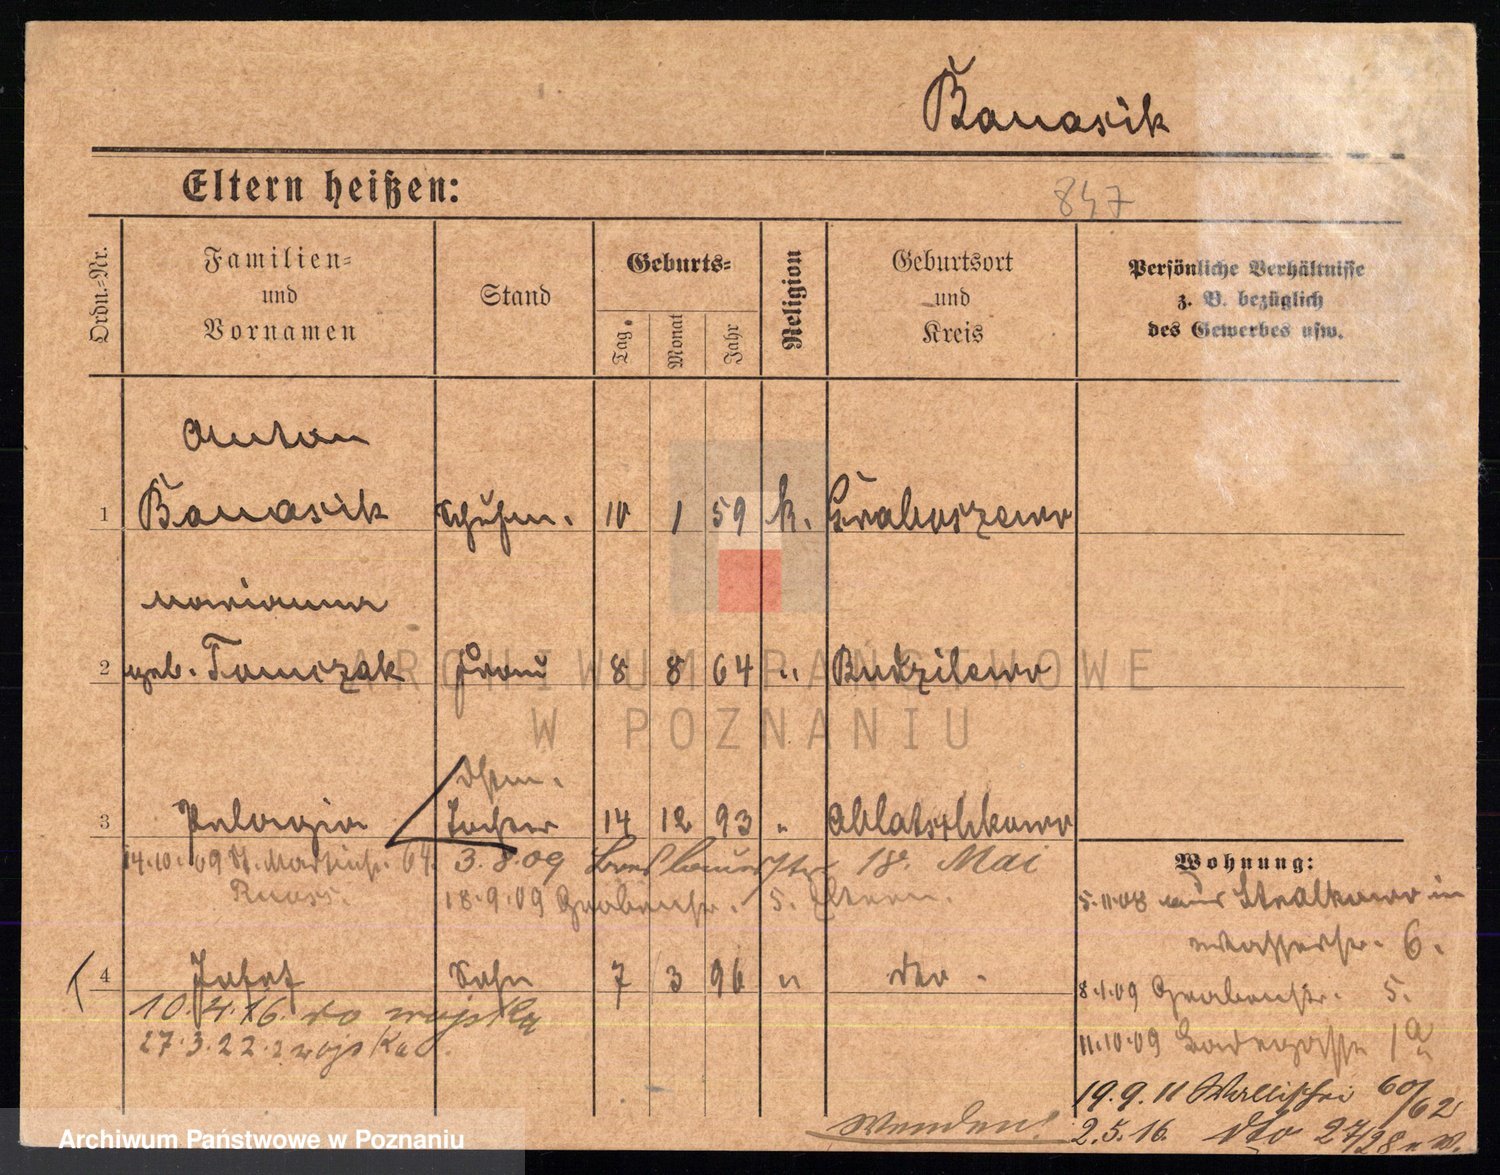 Banasik
Eltern heißen:
847
Ordn.-Nr.
Familien- und Vornamen
Stand
Geburts-
Tag. Monat Jahr
Religion
Geburtsort und Kreis
Persönliche Verhältnisse z. B. bezüglich des Gewerbes usw.
Anton
1 Banasik Schuhm. 10 1 59 k. Graboszewo
Marianna
2 geb. Tomczak Frau 8 8 64 " Budzilowo
3 Pelagia Tochter 14 12 93 "
14.10.09 St. Martinstr. 64. 3.8.09 Breslauerstr. 18. Mai
18.9.09 Grabenstr. 5. Eltern.
4 Josef Sohn 7 3 96 " dto.
10.4.16. do wojska
27.3.22. z wojska.
Wohnung:
5.11.08 aus Stralkowo in
Wasserstr. 6.
8.1.09 Grabenstr. 5.
11.10.09 1a
19.9.11 Wallischei 60/62
2.5.16. dto 27/28
Wenden!
ARCHIWUM PAŃSTWOWE
W POZNANIU
Archiwum Państwowe w Poznaniu